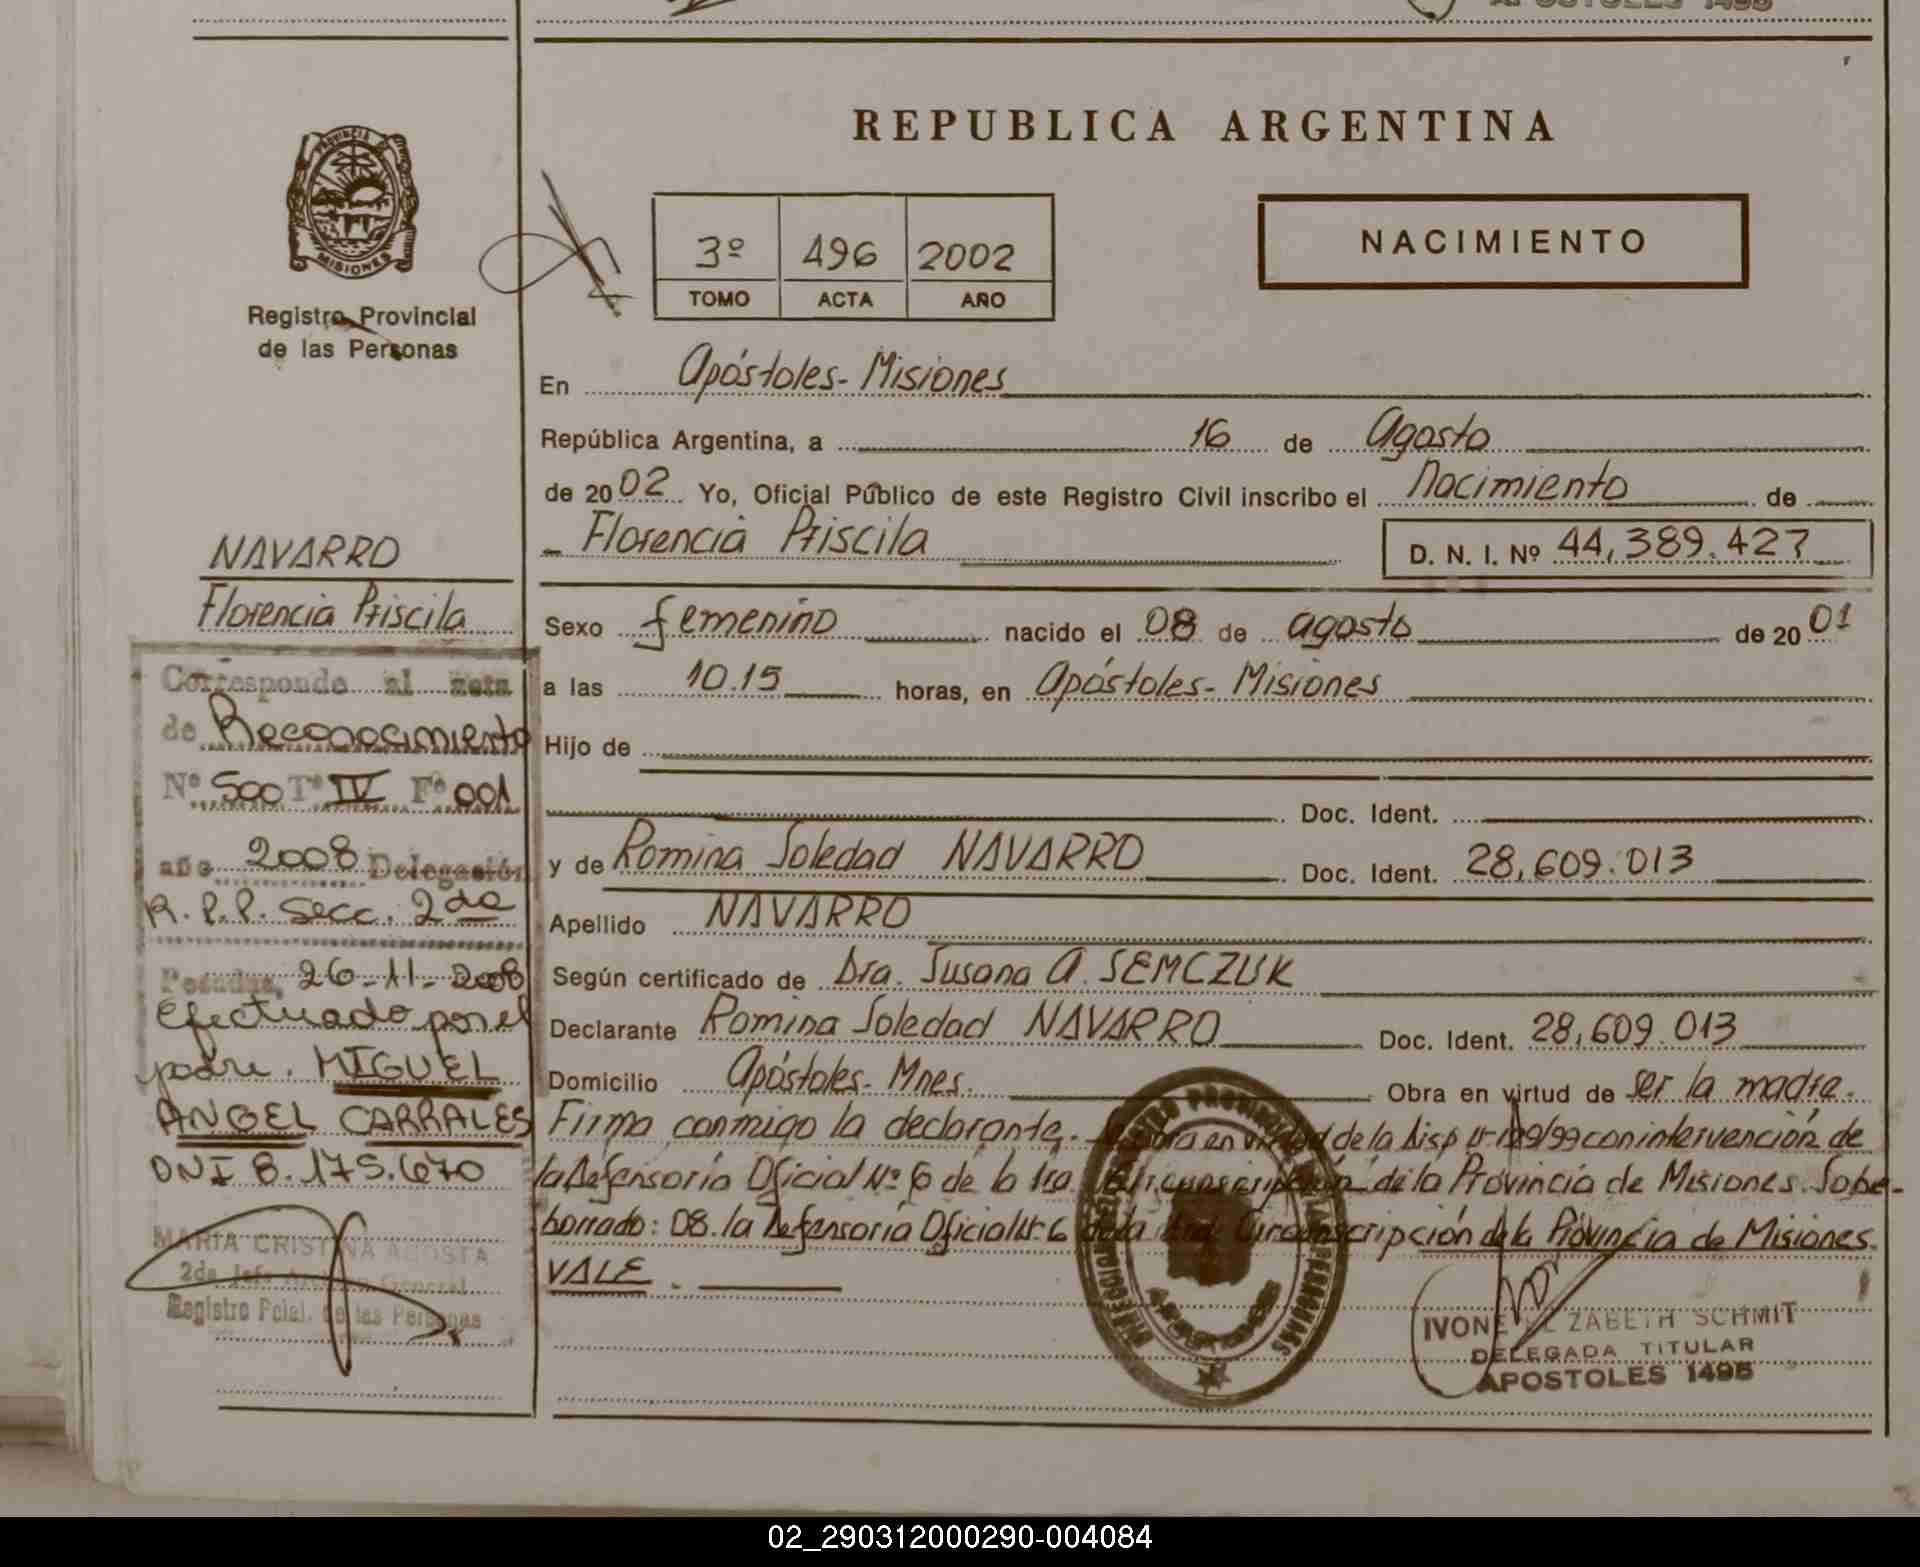 APOSTOLES 1495
PROVINCIA DE
MISIONES
Registro Provincial
de las Personas
REPUBLICA ARGENTINA
3º 496 2002
TOMO ACTA AÑO
NACIMIENTO
En Apóstoles - Misiones
República Argentina, a 16 de Agosto
de 2002 Yo, Oficial Público de este Registro Civil inscribo el Nacimiento de
Florencia Priscila D. N. I. Nº 44,389.427
Sexo femenino nacido el 08 de agosto de 2001
a las 10.15 horas, en Apóstoles - Misiones
Hijo de
Doc. Ident.
y de Romina Soledad NAVARRO Doc. Ident. 28,609.013
Apellido NAVARRO
Según certificado de Dra. Susana A. SEMCZUK
Declarante Romina Soledad NAVARRO Doc. Ident. 28,609.013
Domicilio Apóstoles - Mnes. Obra en virtud de ser la madre.
Firma conmigo la declarante. en virtud de la Disp con intervención de
la Defensoria Oficial Nº 6 de la 1ra. Circunscripción de la Provincia de Misiones. Sobe-
borrado: 08. la Defensoria Oficial Nº 6 de la 1ra. Circunscripción de la Provincia de Misiones.
VALE.
IVONE ELIZABETH SCHMIT
DELEGADA TITULAR
APOSTOLES 1495
NAVARRO
Florencia Priscila
Corresponde al acta
de Reconocimiento
Nº 500 Tº IV Fº 001
año 2008 Delegación
R.P.P. Secc. 2da
Posadas, 26-11-2008
Efectuado por el
padre. MIGUEL
ANGEL CARRALES
DNI 8.175.670
MARIA CRISTINA ACOSTA
2da Jefe Archivo General
Registro Pcial. de las Personas
02_290312000290-004084